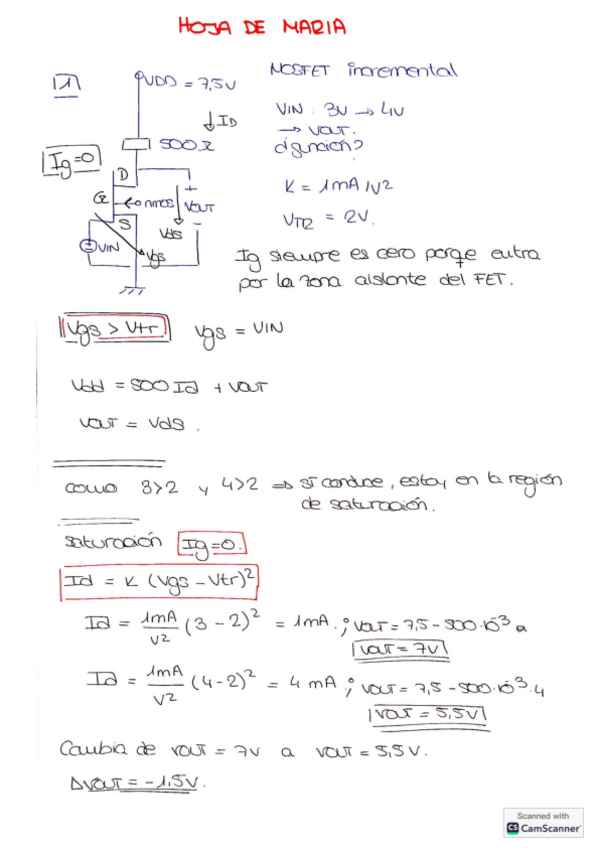 HOJA DE MARIA
1
VDD = 7,5V
MOSFET incremental
↓ ID
VIN : 3V → 4V
→ VOUT.
500Ω
¿función?
Ig=0
D
G
NMOS
+
VOUT
-
K = 1mA/V2
VTR = 2V.
S
Vds
VIN
Vgs
Ig siempre es cero porqe entra
por la zona aislante del FET.
Vgs > Vtr
Vgs = VIN
Vdd = 500 Id + VOUT
VOUT = Vds.
como 3>2 y 4>2 ⇒ sí conduce, estoy en la región
de saturación.
saturación Ig=0.
Id = K (Vgs - Vtr)²
Id = 1mA/V² (3-2)² = 1mA. ; VOUT = 7,5 - 500·10⁻³ a
VOUT = 7V
Id = 1mA/V² (4-2)² = 4 mA ; VOUT = 7,5 - 500·10⁻³·4
VOUT = 5,5V
Cambia de VOUT = 7V a VOUT = 5,5V.
ΔVOUT = -1,5V.
Scanned with
CS CamScanner